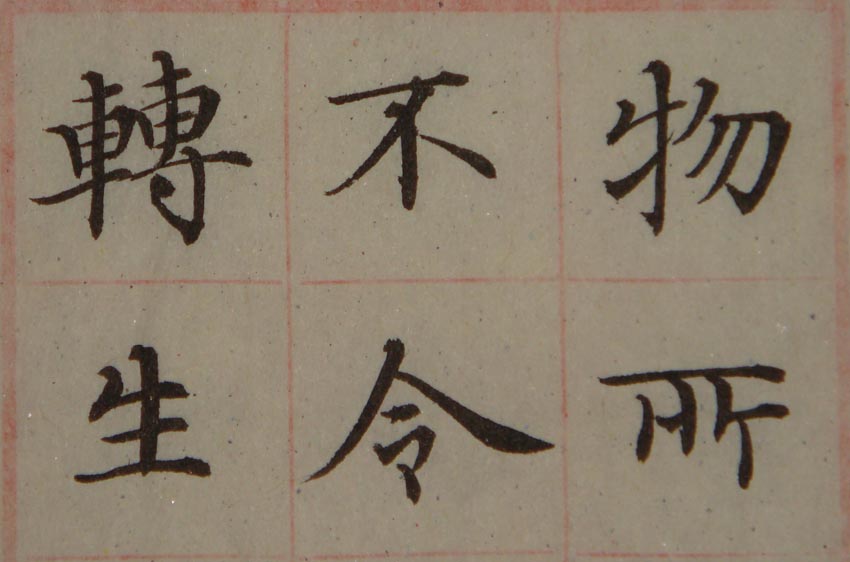 物所
不令
轉生